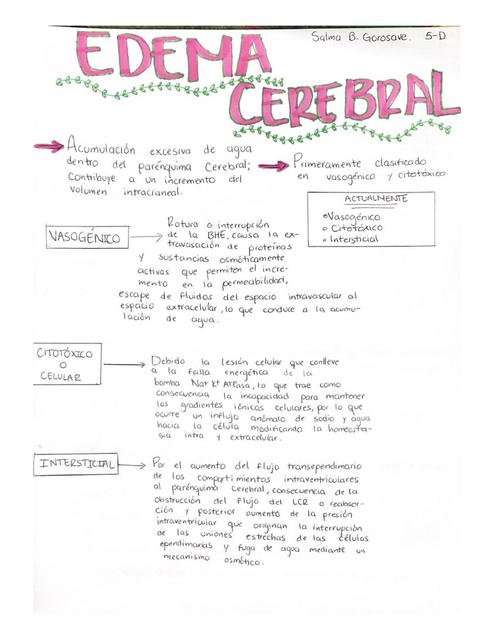 Salma B. Gorosave. 5-D
EDEMA
CEREBRAL
Acumulación excesiva de agua
dentro del parénquima Cerebral;
Contribuye a un incremento del
volumen intracraneal.
Primeramente clasificado
en vasogénico y citotóxico.
ACTUALMENTE
Vasogénico
Citotóxico
Intersticial
VASOGÉNICO
Rotura o interrupción
de la BHE, causa la ex-
travasación de proteínas
y sustancias osmóticamente
activas que permiten el incre-
mento en la permeabilidad,
escape de fluidos del espacio intravascular al
espacio extracelular, lo que conduce a la acumu-
lación de agua.
CITOTÓXICO
O
CELULAR
Debido la lesión celular que conlleve
a la falla energética de la
bomba Na+ K+ ATPasa, lo que trae como
consecuencia la incapacidad para mantener
los gradientes iónicos celulares, por lo que
ocurre un influjo anómalo de sodio y agua
hacia la célula modificando la homeosta-
sia intra y extracelular.
INTERSTICIAL
Por el aumento del flujo transependimario
de los compartimientos intraventriculares
al parénquima cerebral, consecuencia de la
obstrucción del flujo del LCR o reabsor-
ción y posterior aumento de la presión
intraventricular que originan la interrupción
de las uniones estrechas de las células
ependimarias y fuga de agua mediante un
mecanismo osmótico.